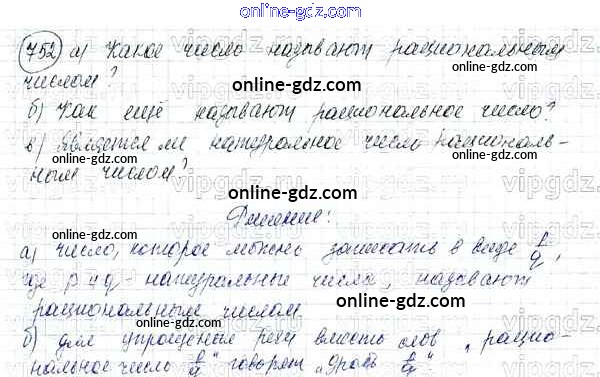 online-gdz.com
752 а) Какое число называют рациональным
числом?
online-gdz.com
б) Как ещё называют рациональное число?
online-gdz.com
в) Является ли натуральное число рациональ-
ным числом?
online-gdz.com
Решение:
online-gdz.com
а) число, которое можно записать в виде p/q,
где p и q - натуральные числа, называют
рациональным числом
online-gdz.com
б) для упрощения речи вместо слов „рацио-
нальное число p/q" говорят „дробь p/q"
online-gdz.com